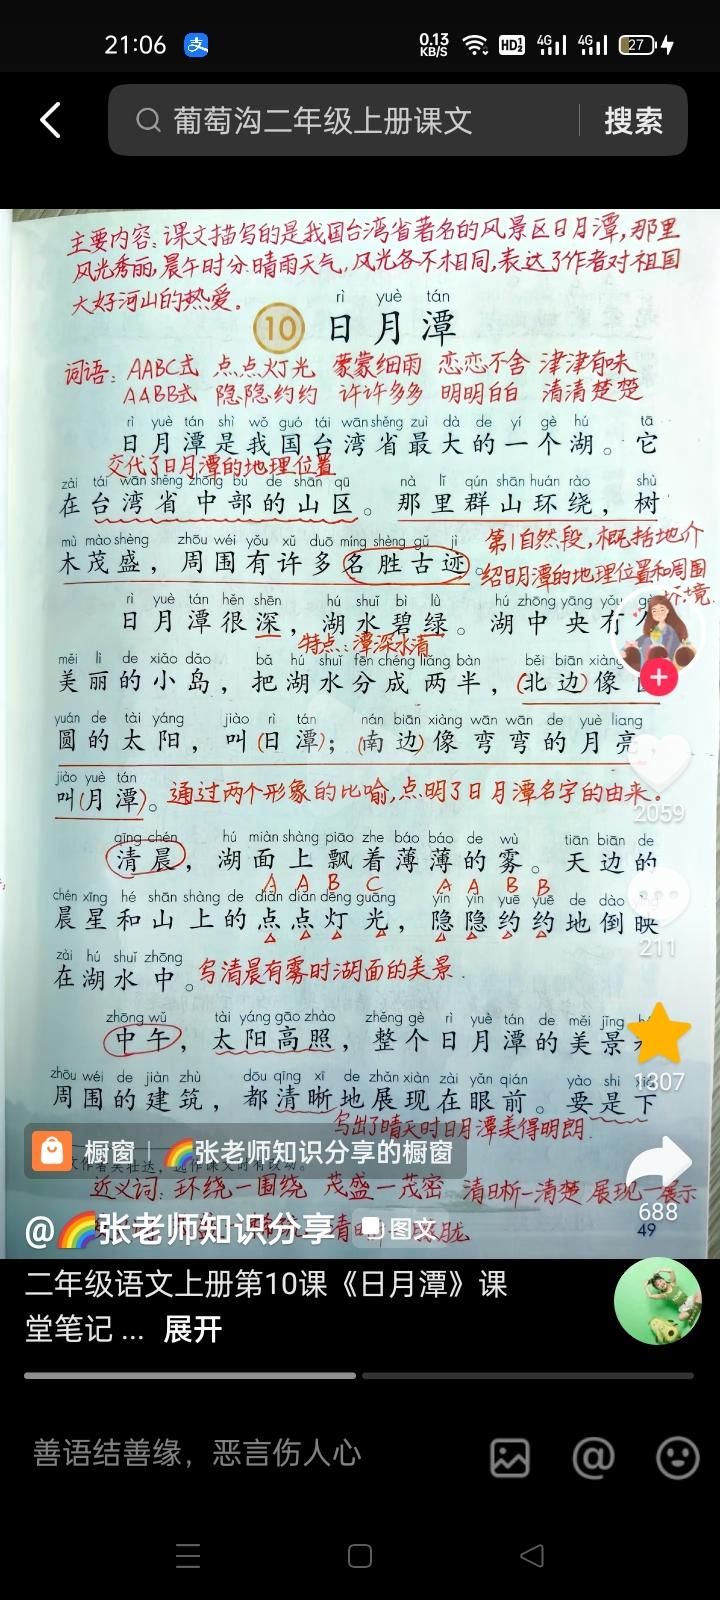 21:06
0.13 KB/S HD 4G 4G 27
葡萄沟二年级上册课文
搜索
主要内容：课文描写的是我国台湾省著名的风景区日月潭，那里
风光秀丽，晨午时分晴雨天气，风光各不相同，表达了作者对祖国
大好河山的热爱。
rì yuè tán
10 日月潭
词语：AABC式 点点灯光 蒙蒙细雨 恋恋不舍 津津有味
AABB式 隐隐约约 许许多多 明明白白 清清楚楚
rì yuè tán shì wǒ guó tái wān shěng zuì dà de yí gè hú tā
日月潭是我国台湾省最大的一个湖。它
交代了日月潭的地理位置
zài tái wān shěng zhōng bù de shān qū nà lǐ qún shān huán rào shù
在台湾省中部的山区。那里群山环绕，树
mù mào shèng zhōu wéi yǒu xǔ duō míng shèng gǔ jì
木茂盛，周围有许多名胜古迹。
第1自然段，概括地介
绍日月潭的地理位置和周围
环境.
rì yuè tán hěn shēn hú shuǐ bì lǜ hú zhōng yāng yǒu
日月潭很深，湖水碧绿。湖中央有
特点：潭深水清
měi lì de xiǎo dǎo bǎ hú shuǐ fēn chéng liǎng bàn běi biān xiàng
美丽的小岛，把湖水分成两半，(北边)像
yuán de tài yáng jiào rì tán nán biān xiàng wān wān de yuè liang
圆的太阳，叫(日潭)；(南边)像弯弯的月亮，
jiào yuè tán
叫(月潭)。通过两个形象的比喻，点明了日月潭名字的由来。
2059
qīng chén hú miàn shàng piāo zhe báo báo de wù tiān biān de
清晨，湖面上飘着薄薄的雾。天边的
A A B C A A B B
chén xīng hé shān shàng de diǎn diǎn dēng guāng yǐn yǐn yuē yuē de dào
晨星和山上的点点灯光，隐隐约约地倒映
211
zài hú shuǐ zhōng
在湖水中。写清晨有雾时湖面的美景.
zhōng wǔ tài yáng gāo zhào zhěng gè rì yuè tán de měi jǐng
中午，太阳高照，整个日月潭的美景
1307
zhōu wéi de jiàn zhù dōu qīng xī de zhǎn xiàn zài yǎn qián yào shi
周围的建筑，都清晰地展现在眼前。要是下
写出了晴天时日月潭美得明朗.
橱窗 | 🌈张老师知识分享的橱窗
近义词：环绕—围绕 茂盛—茂密 清晰—清楚 展现—展示
688
@🌈张老师知识分享 图文
49
二年级语文上册第10课《日月潭》课
堂笔记 ... 展开
善语结善缘，恶言伤人心